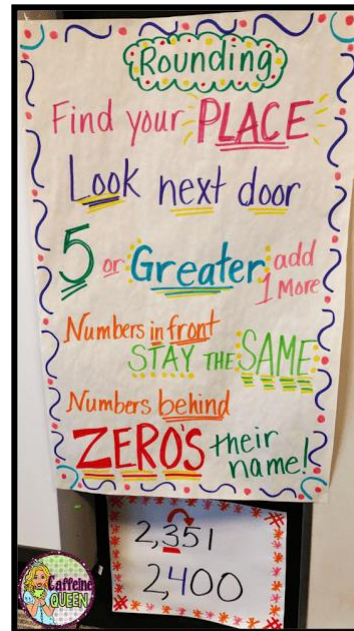 Rounding
Find your PLACE
Look next door
5 or Greater, add
1 More
Numbers in front
STAY THE SAME
Numbers behind
ZERO'S their
name!
2,351
2,400
Caffeine
QUEEN